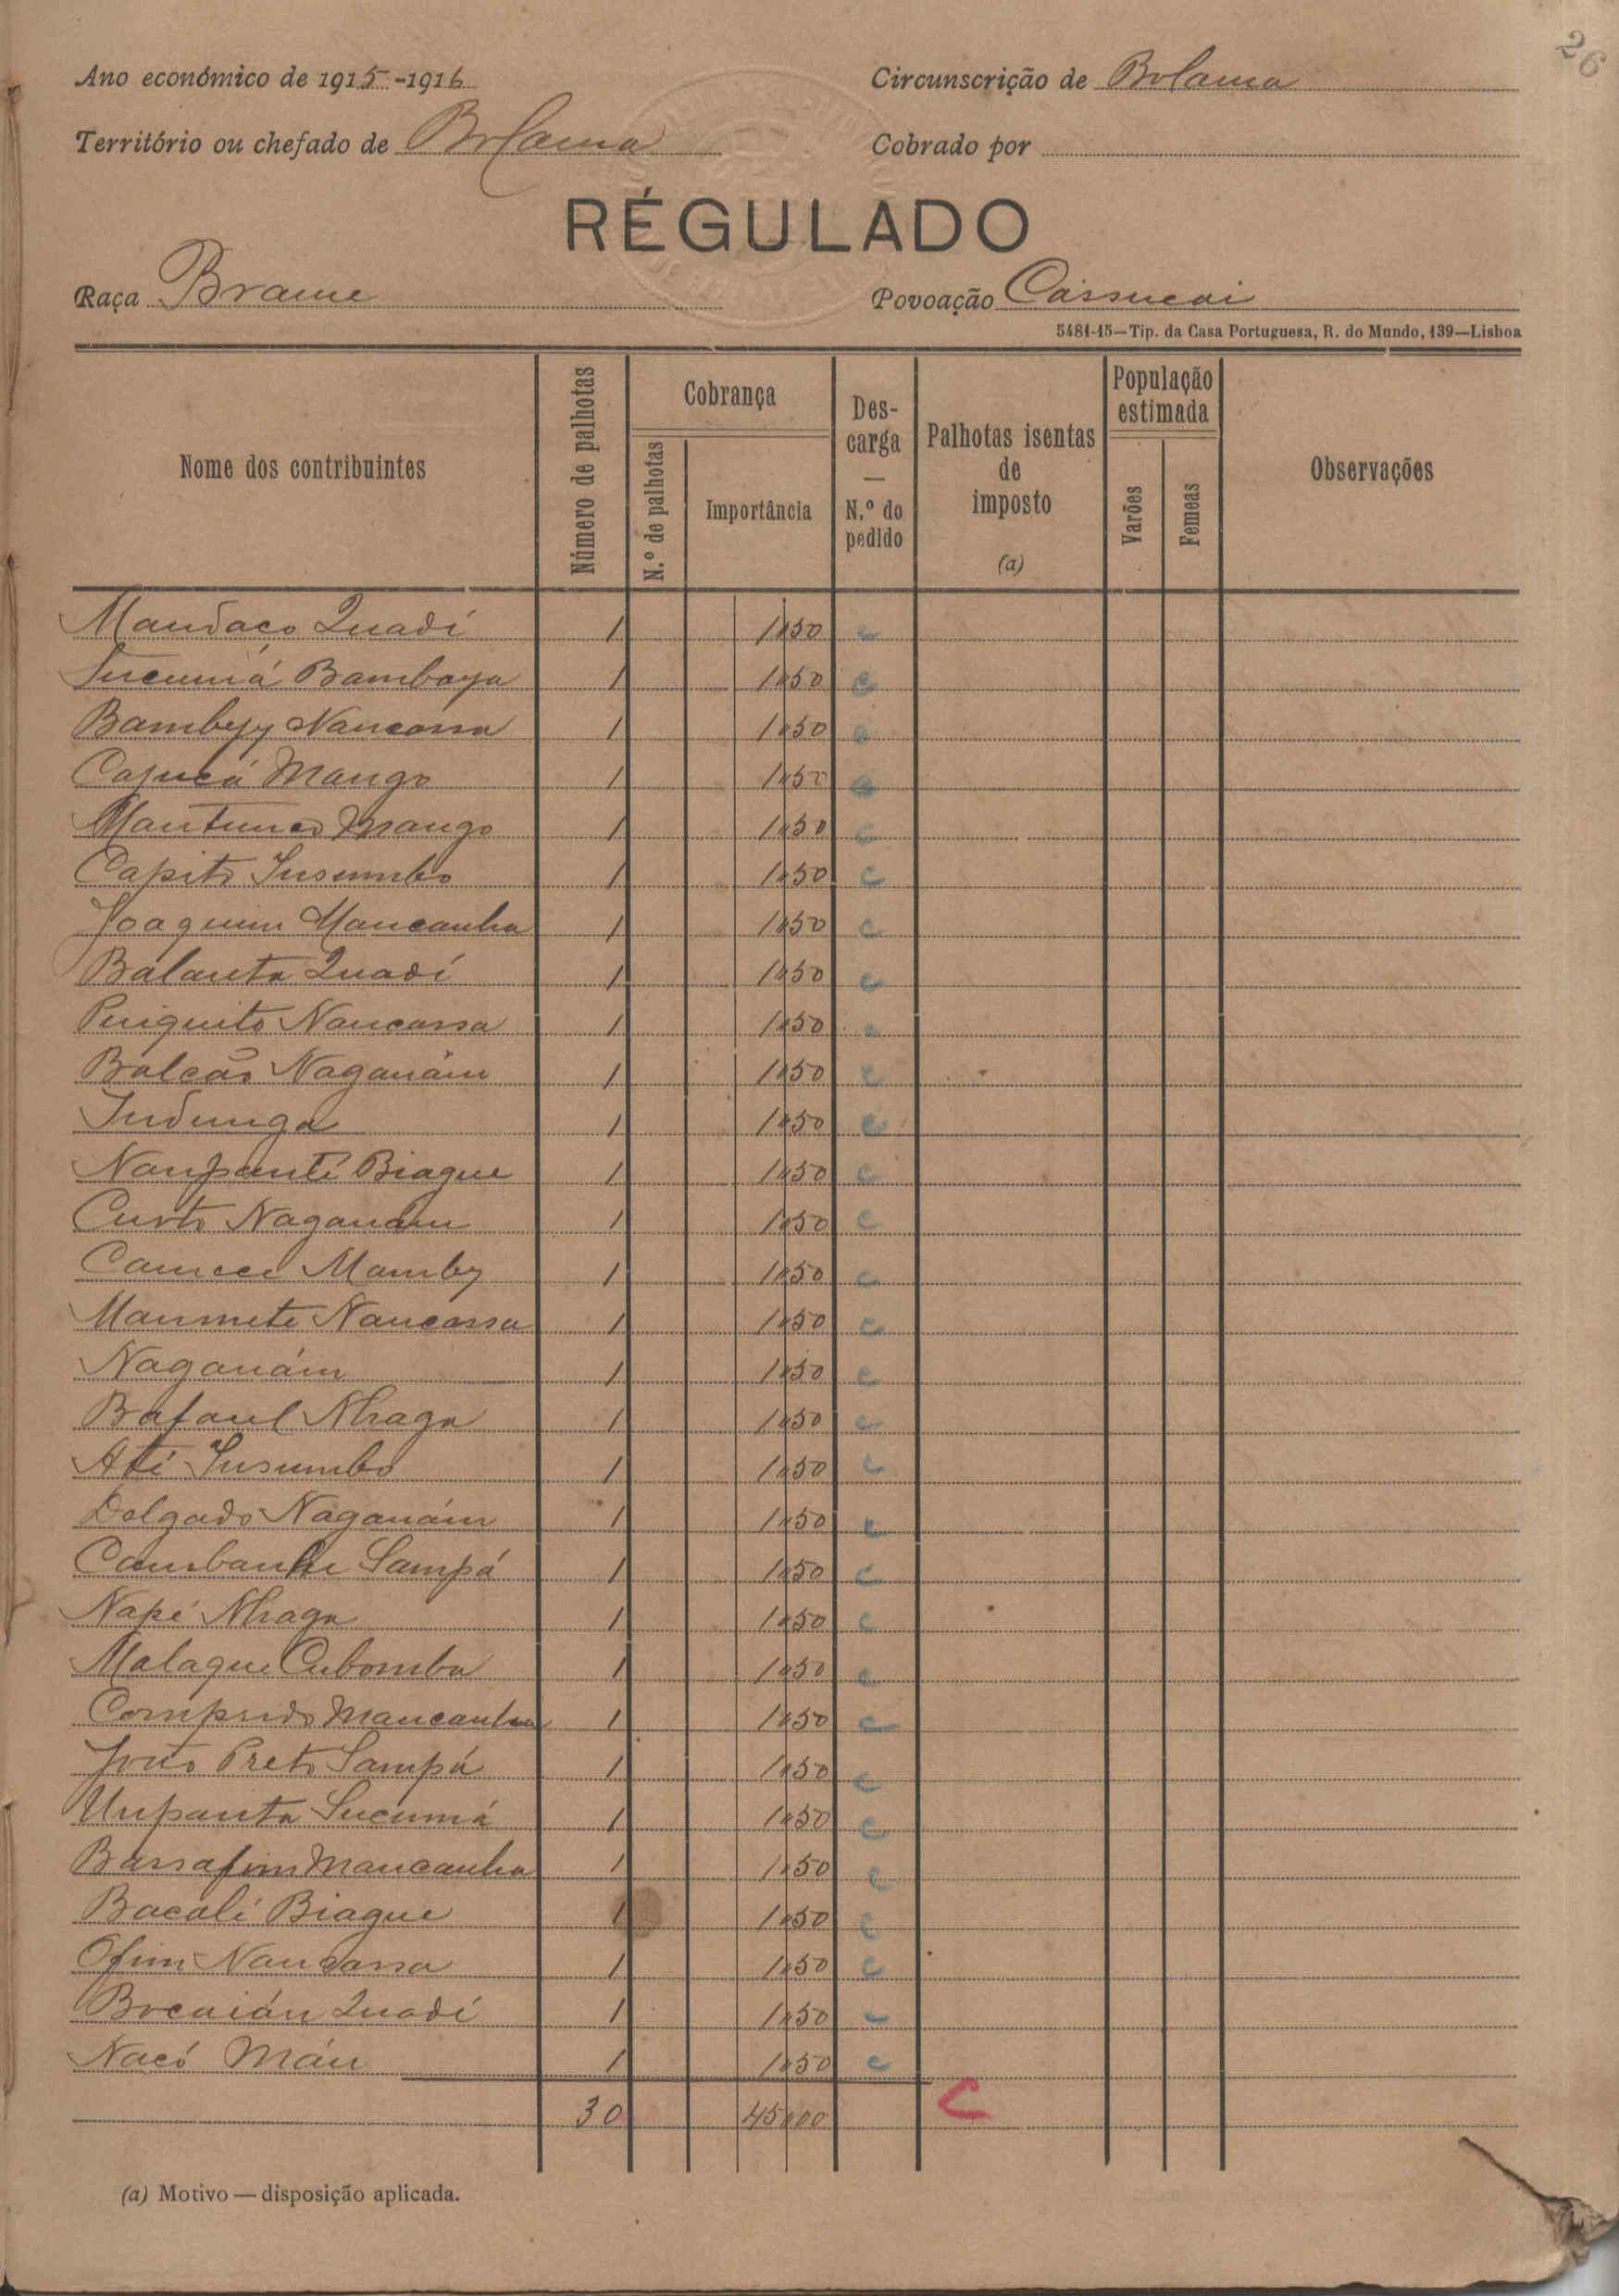 26
Ano económico de 1915-1916 Circunscrição de Bolama
Território ou chefado de Bolama Cobrado por
RÉGULADO
Raça Brame Povoação Cassucai
5481-15—Tip. da Casa Portuguesa, R. do Mundo, 139—Lisboa
Nome dos contribuintes Número de palhotas Cobrança N.º de palhotas Importância Descarga — N.º do pedido Palhotas isentas de imposto (a) População estimada Varões Femeas Observações
Mandaço Quadí 1 1$50 c
Sucumá Bambaya 1 1$50 c
Bamby Nancassa 1 1$50 c
Cajucá Mango 1 1$50 c
Mantunes Mango 1 1$50 c
Capito Insumbo 1 1$50 c
Joaquim Mancanha 1 1$50 c
Balanta Quadí 1 1$50 c
Piriquito Nancassa 1 1$50 c
Balcão Naganám 1 1$50 c
Indunga 1 1$50 c
Nanpantí Biague 1 1$50 c
Curto Naganám 1 1$50 c
Mamby 1 1$50 c
Manmete Nancassa 1 1$50 c
Naganám 1 1$50 c
Rafael Nhaga 1 1$50 c
Atí Insumbo 1 1$50 c
Delgado Naganám 1 1$50 c
Cambanhe Sampá 1 1$50 c
Napé Nhaga 1 1$50 c
Malaque Cubomba 1 1$50 c
Comprido Mancanha 1 1$50 c
João Preto Sampá 1 1$50 c
Unpanta Sucumá 1 1$50 c
Bassafim Mancanha 1 1$50 c
Bacalí Biague 1 1$50 c
Ofim Nancassa 1 1$50 c
Bocaián Quadí 1 1$50 c
Nacó Mán 1 1$50 c
30 45$00 C
(a) Motivo — disposição aplicada.